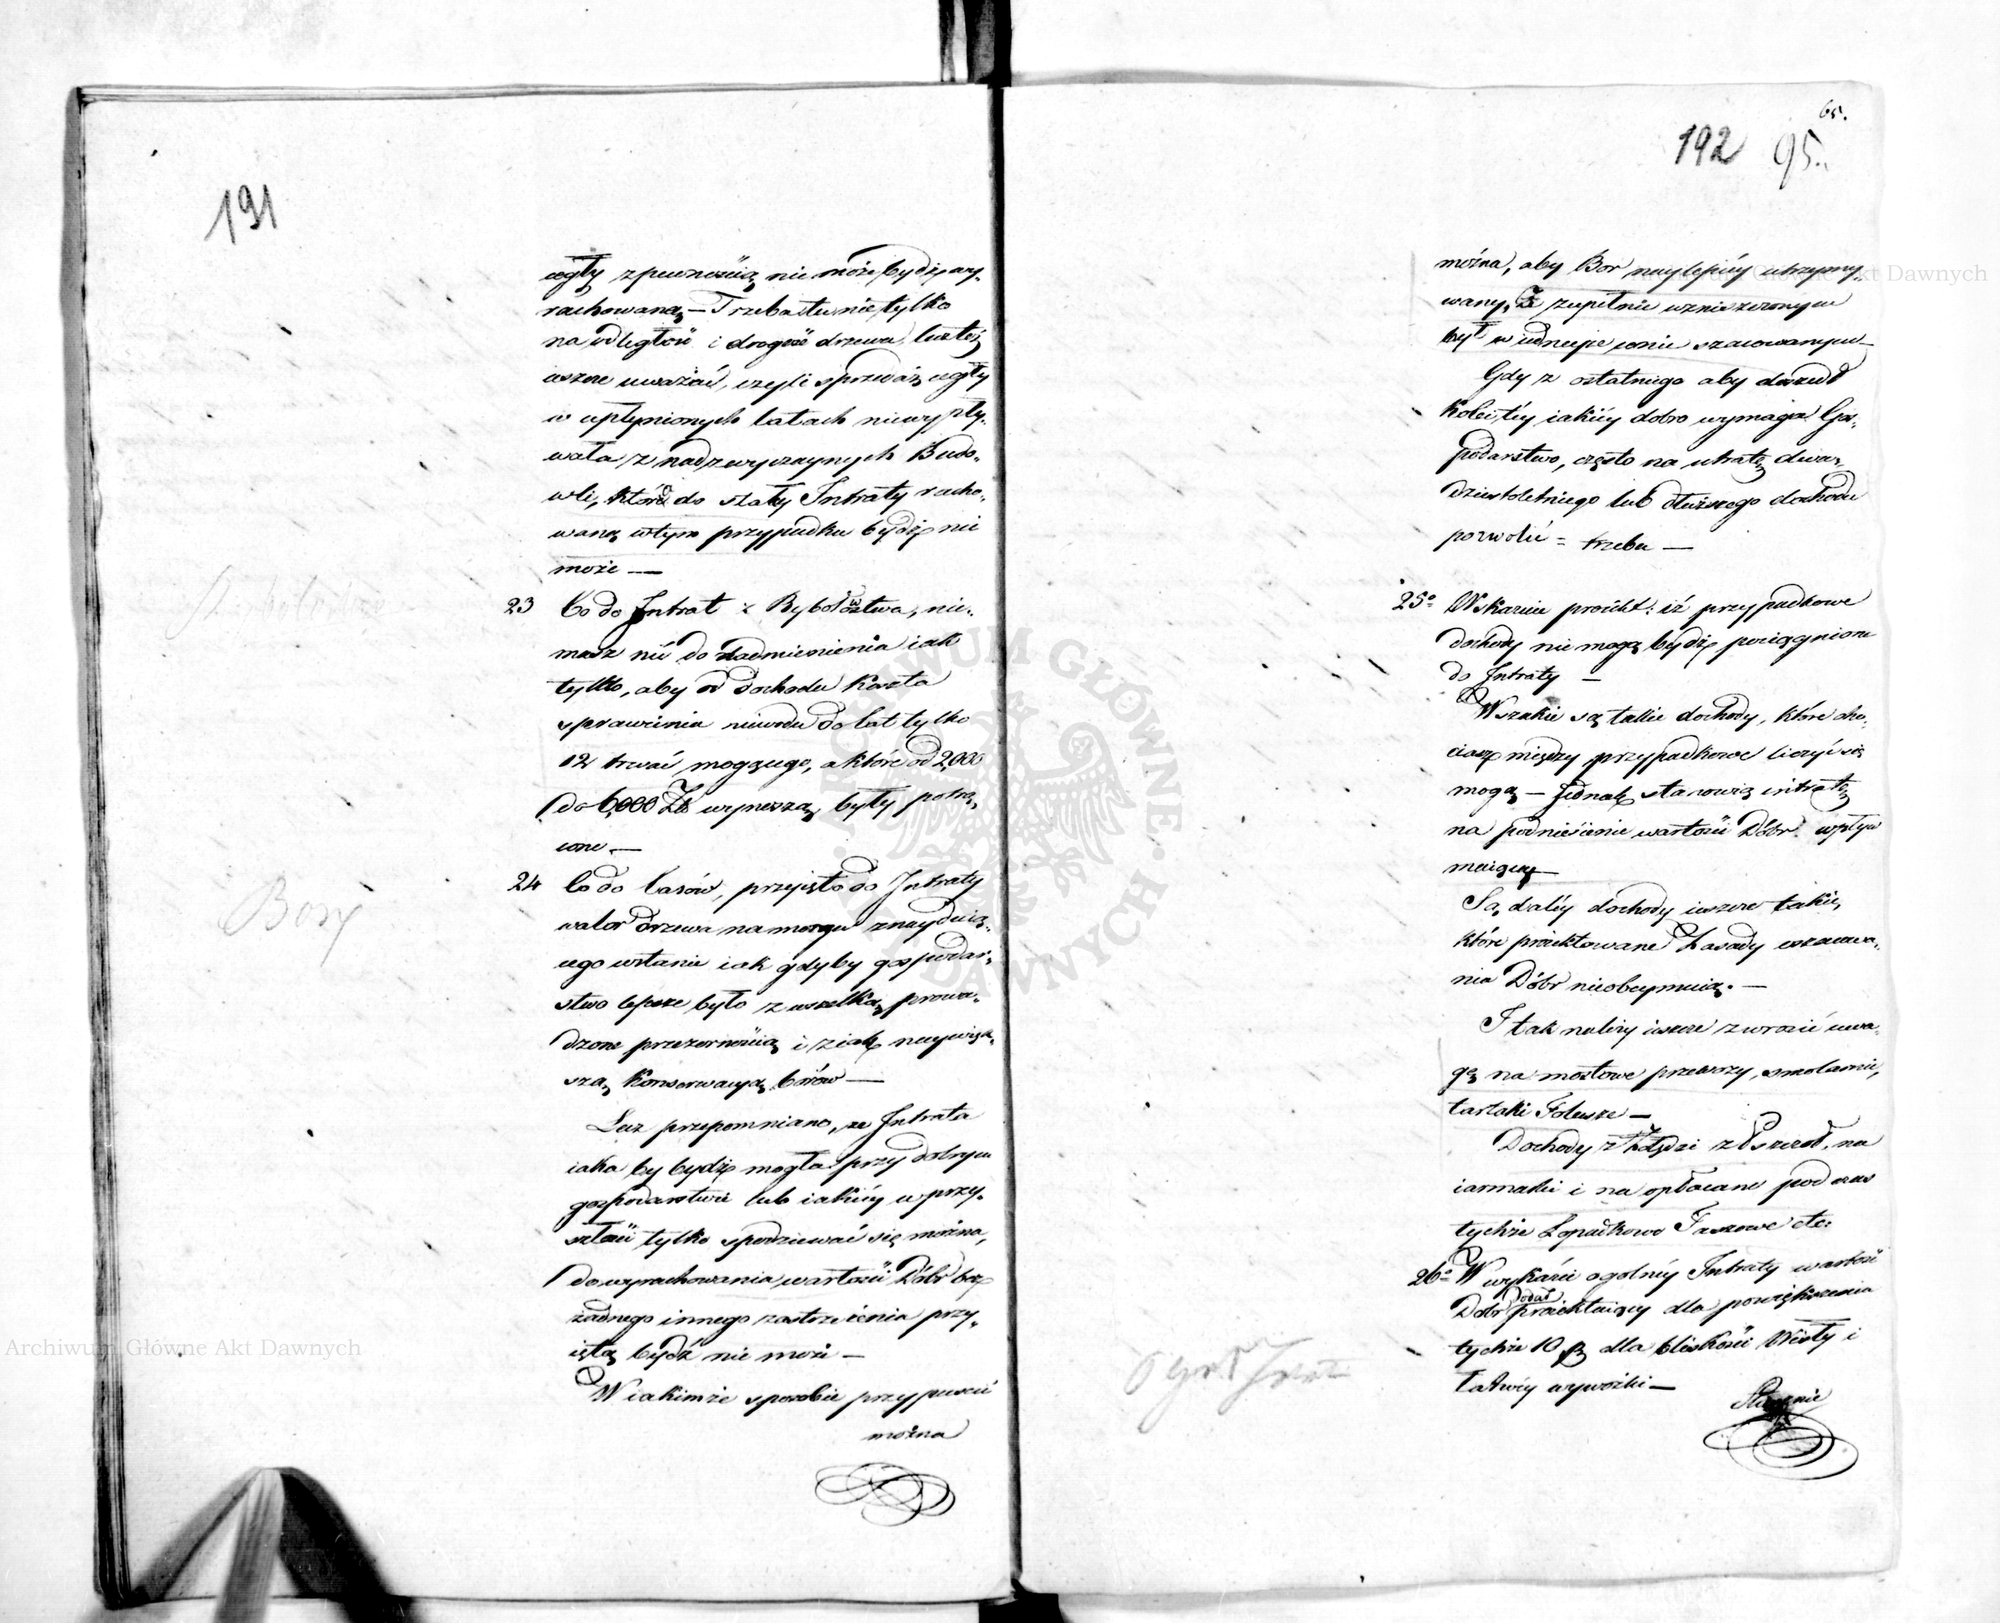 191
cegły z pewnością nie może bydź wy-
rachowaną — Trzeba tu nie tylko
na odległość i drogość drzewa, lecz też
ieszcze uważać, czyli sprzedaż cegły
w upłynionych latach niewypły-
wała z nadzwyczaynych Budo-
wli, które do stałey Intraty racho-
waną w tym przypadku bydź nie
może —
23 Co do Intrat z Rybołowstwa, nie-
masz nic do nadmienienia iak
tylko, aby od dochodu koszta
sprawienia niewodu do lat tylko
12 trwać mogącego, a które od 2000
do 6,000 Zł wynoszą, były potrą-
cone. —
24 Co do Lasów, przyjęto do Intraty
walor drzewa na morgu znayduią-
cego w stanie iak gdyby gospodar-
stwo lepsze było z wszelką prowa-
dzone przezornością i z iak naywięk-
szą konserwacyą borów —
Lecz przepomniano, że Intrata
iaka by bydź mogła przy dobrym
gospodarstwie lub iakiéy w przy-
szłości tylko spodziewać się można,
do wyrachowania wartości Dóbr bez
żadnego innego zastrzeżenia przy-
iętą bydź nie może —
W iakimże sposobie przypuscić
można
Bory
65.
192 95.
można, aby Bor naylepiéy utrzymy-
wany, Z zupełnie wzniszczonym
był w iednéyże cenie szacowanym —
Gdy z ostatniego aby doszedł
kolei, téy iakiéy dobro wymaga Gos-
podarstwo, często na utratę dwu-
dziestoletniego lub dłuższego dochodu
pozwolić = trzeba —
25o Wskazuie proiekt: iż przypadkowe
dochody nie mogą bydź pociągnione
do Intraty —
Wszakże są takie dochody, które cho-
ciasz między przypadkowe liczyć się
mogą — jednak stanowią intratę
na podniesienie wartości Dóbr wpływ
maiącą —
Są daléy dochody ieszcze takie,
które proiektowane Zasady szacowa-
nia Dóbr nieobeymuią. —
I tak należy ieszcze zwrocić uwa-
gę na mostowe przewozy, smolarnie,
tartaki Folusze —
Dochody z Żołędzi z Pszczoł, na
iarmarki i na opłacane podczas
tychże Łopatkowe Jaszowe etc:
26o W wykazie ogolnéy Intraty wartość
Dóbr proiektuiący dodał dla powiększenia
tychże 10 % dla bliskości Wisły i
łatwéy wywózki —
Ogol Intrat